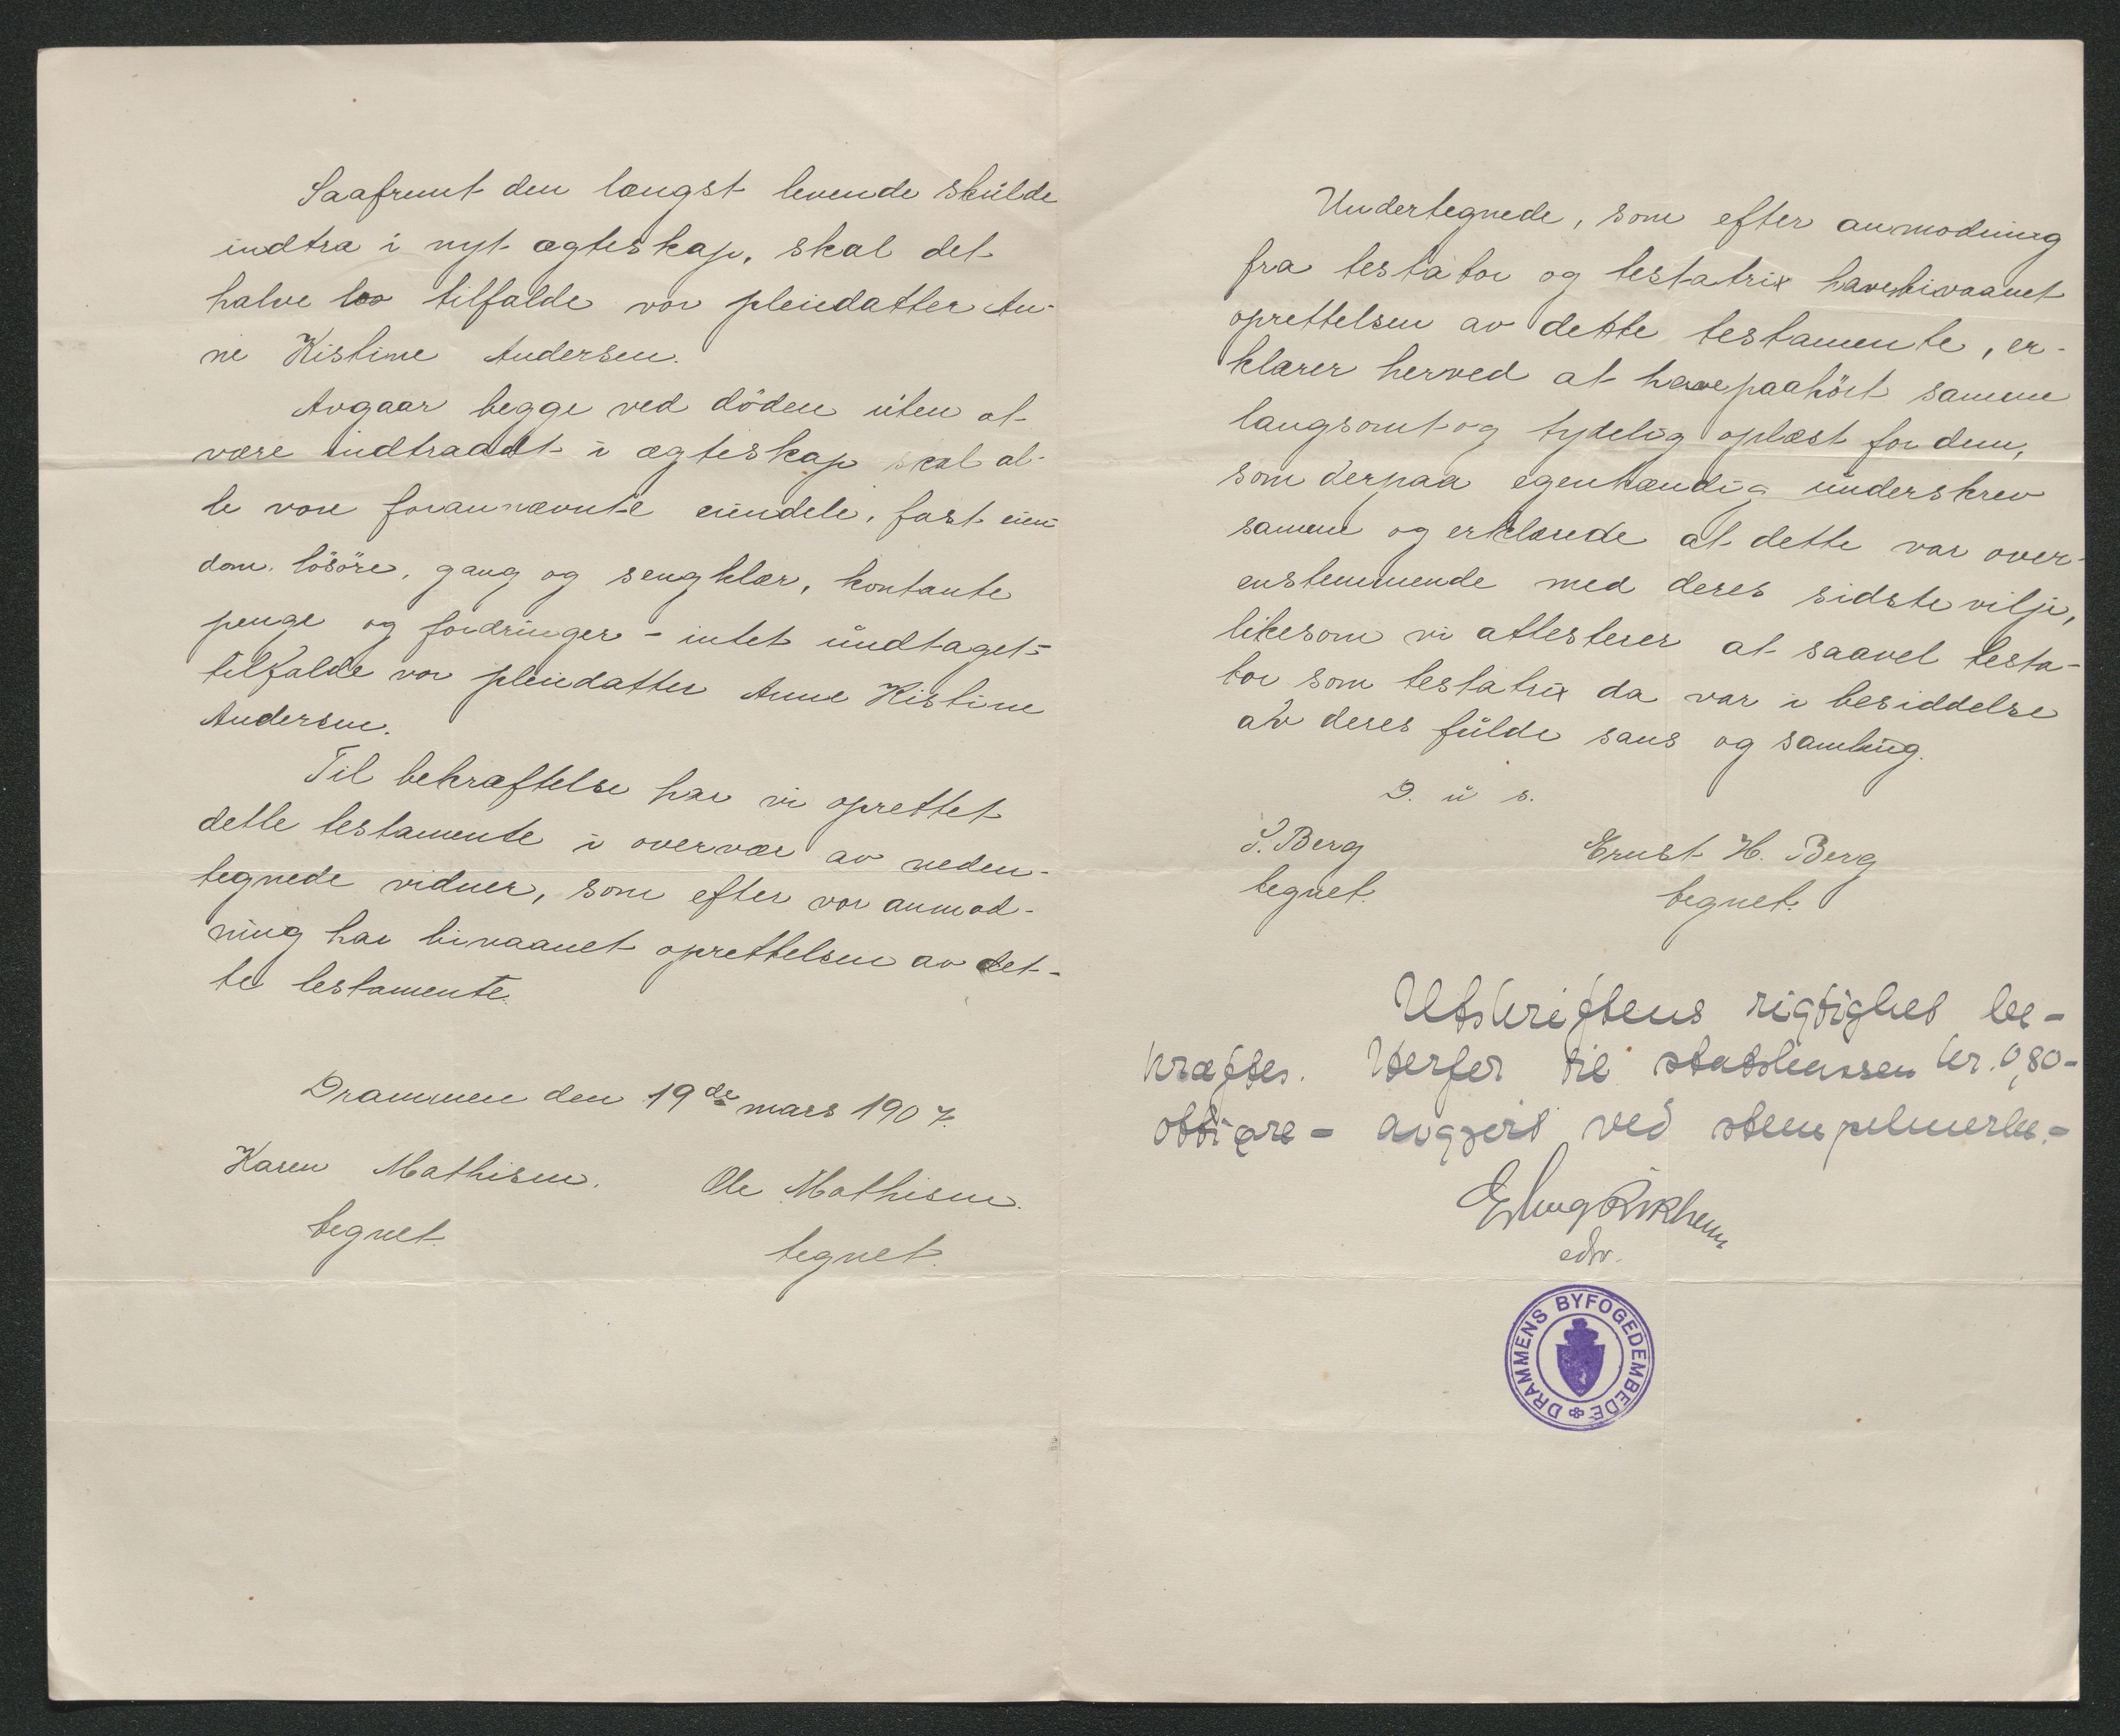 Saafremt den længst levende skulde
indtræ i nyt ægteskap, skal det
halve bo tilfalde vor pleiedatter An-
ne Kistine Andersen.
Avgaar begge ved döden uten at
være indtraadt i ægteskap skal al-
le vore forannævnte eiendele, fast eien-
dom, lösöre, gang og sengklær, kontante
penge og fordringer - intet undtaget -
tilfalde vor pleiedatter Anne Kistine
Andersen.
Til bekræftelse har vi oprettet
dette testamente i overvær av neden-
tegnede vidner, som efter vor anmod-
ning har bivaanet oprettelsen av det-
te testamente.
Drammen den 19de mars 1907.
Karen Mathisen. Ole Mathisen.
tegnet. tegnet.
Undertegnede, som efter anmodning
fra testator og testatrix have bivaanet
oprettelsen av dette testamente, er-
klærer herved at have paahört samme
langsomt og tydelig oplæst for dem,
som derpaa egenhændig underskrev
samme og erklærede at dette var over-
enstemmende med deres sidste vilje,
likesom vi attesterer at saavel testa-
tor som testatrix da var i besiddelse
av deres fulde sans og samling.
D. u s.
S. Berg Ernst H. Berg
tegnet. tegnet.
Utskriftens rigtighet be-
kræftes. Herfor til statskassen kr. 0,80-
otti øre - avgjort ved stempelmerke.-
DRAMMENS BYFOGEDEMBEDE